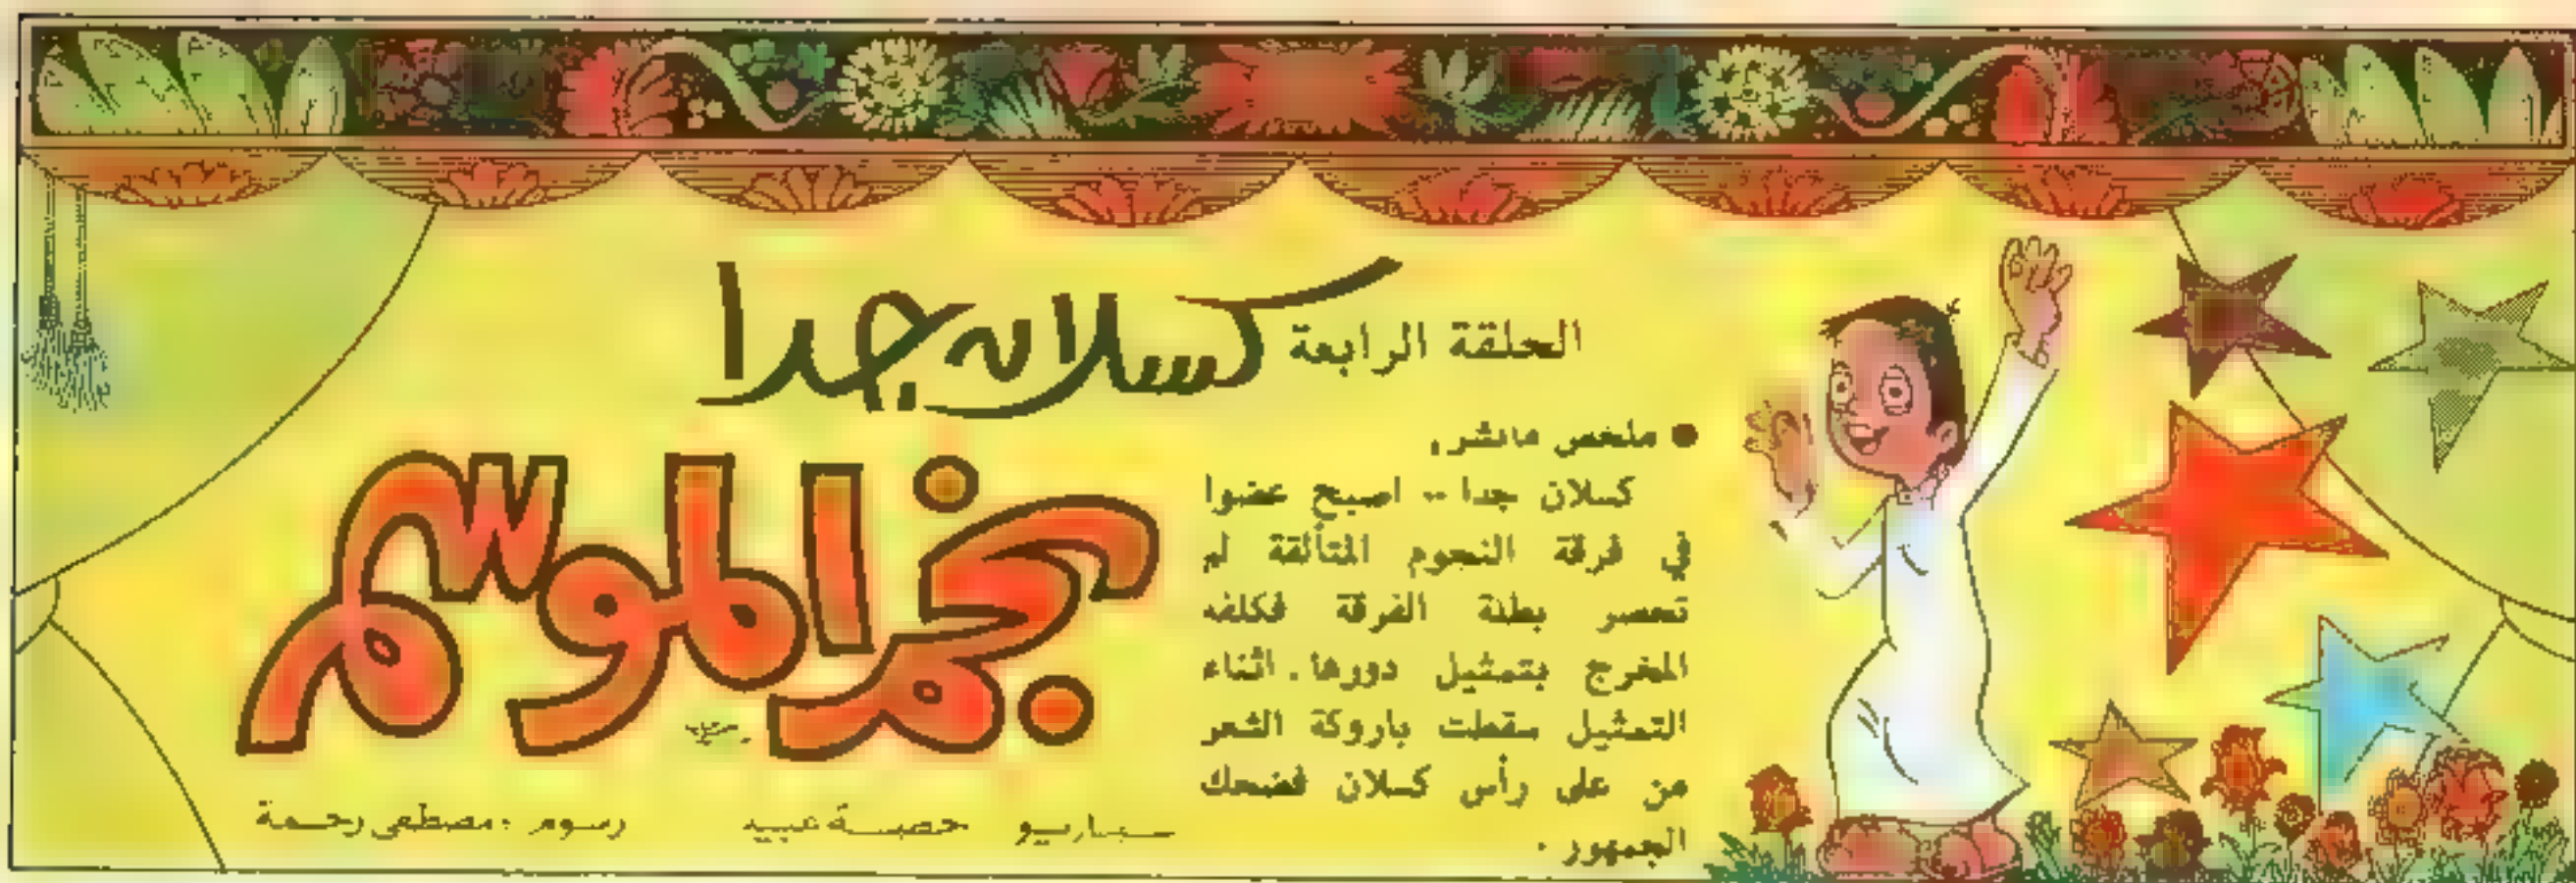 الحلقة الرابعة كسلان جدا
نجم الموسم
● ملخص مانشر.
كسلان جدا .. اصبح عضوا
في فرقة النجوم المتألقة لم
تحضر بطلة الفرقة فكلفه
المخرج بتمثيل دورها. اثناء
التمثيل سقطت باروكة الشعر
من على رأس كسلان فضحك
الجمهور.
سيناريو حصة عبيد رسوم: مصطفى رحمة